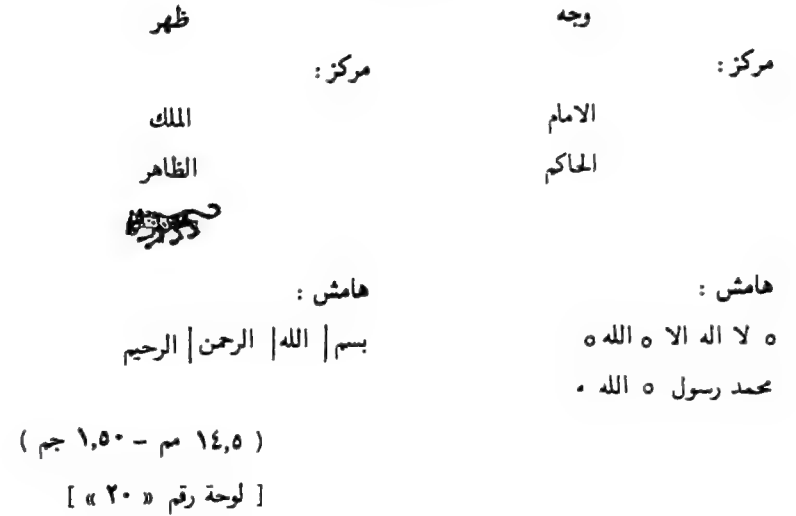 وجه
مركز :
الامام
الحاكم
هامش :
ه لا اله الا ه الله ه
محمد رسول ه الله •
ظهر
مركز :
الملك
الظاهر
هامش :
بسم | الله | الرحمن | الرحيم
( ١٤,٥ مم – ١,٥٠ جم )
[ لوحة رقم « ٢٠ » ]